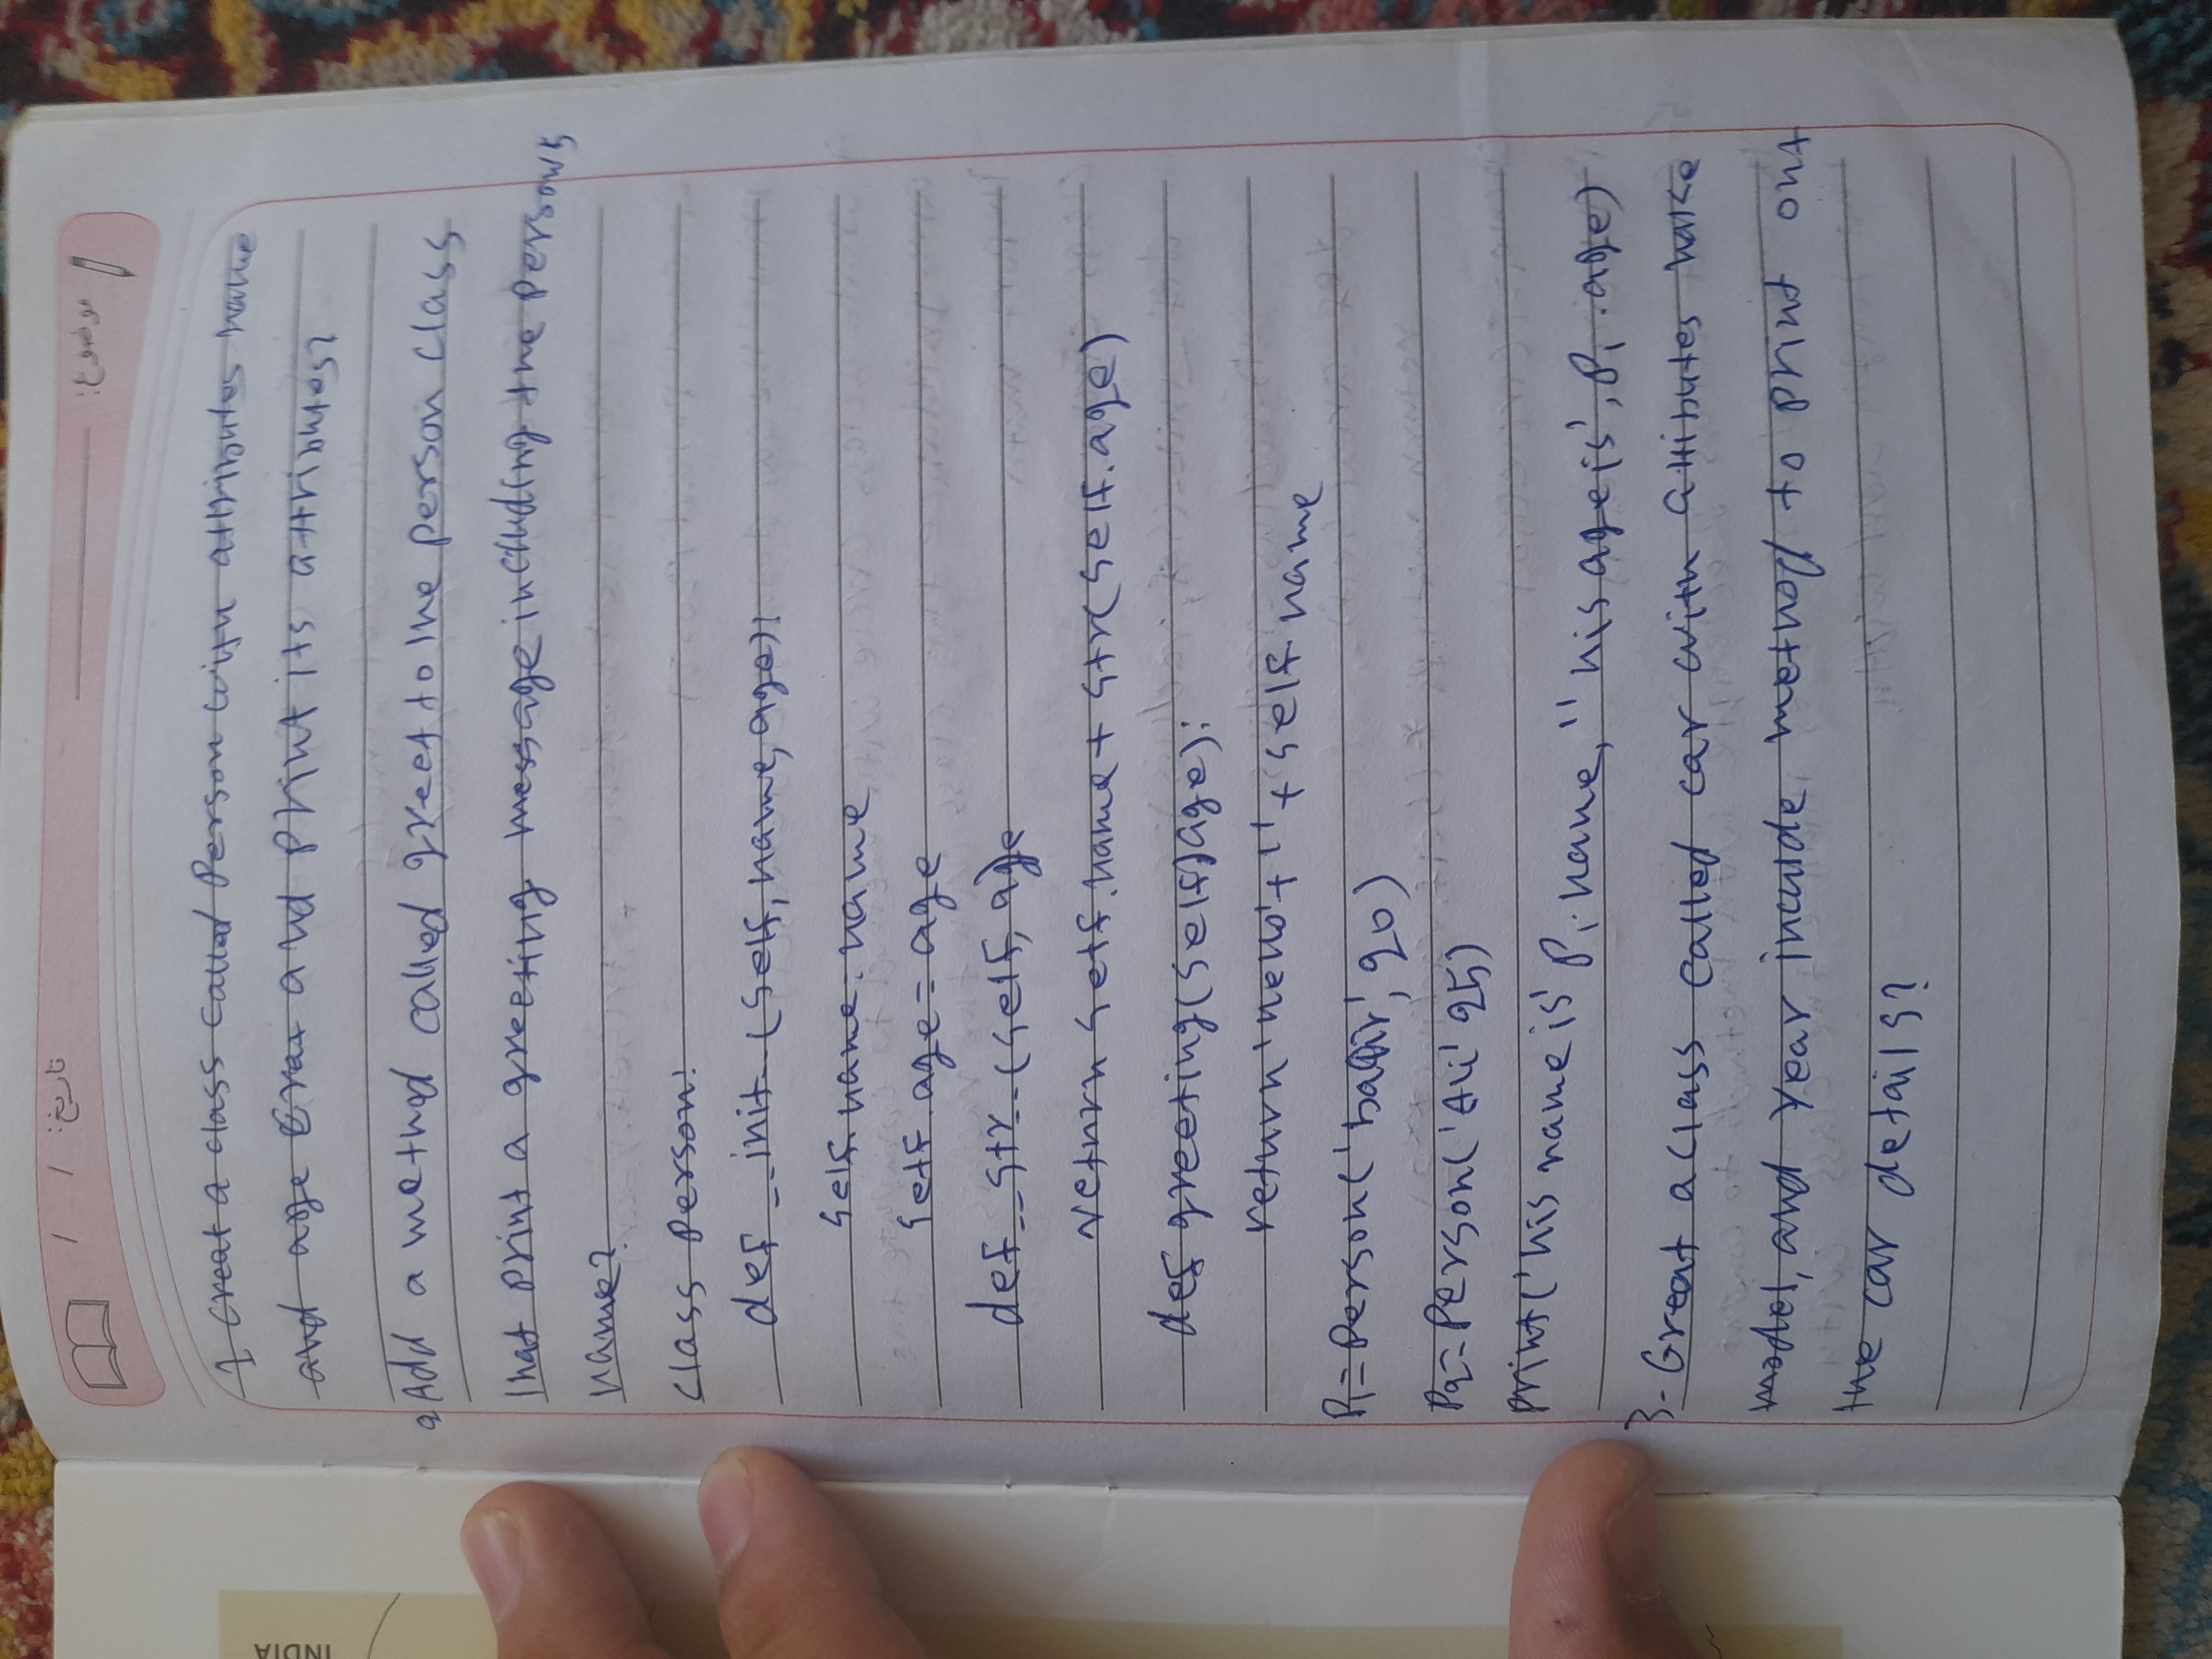 موضوع:
تاریخ: / /
INDIA
1 creat a class called Person with attributes name
and age and print its attributes?
2 Add a method called greet to the person class
that print a greeting message including the persons
name?
class person:
def __init__(self, name, age):
self.name = name
self.age = age
def __str__(self, age
return self.name + str(self.age)
def greeting(self, age):
return 'hello' + '' + self.name
P1 = Person(' ', 20)
P2 = Person('Ali' 25)
print('his name is' P1.name, "his age is', P1.age)
3- Great a class called car with attibutes make
model, and year include method to print out
the car details?